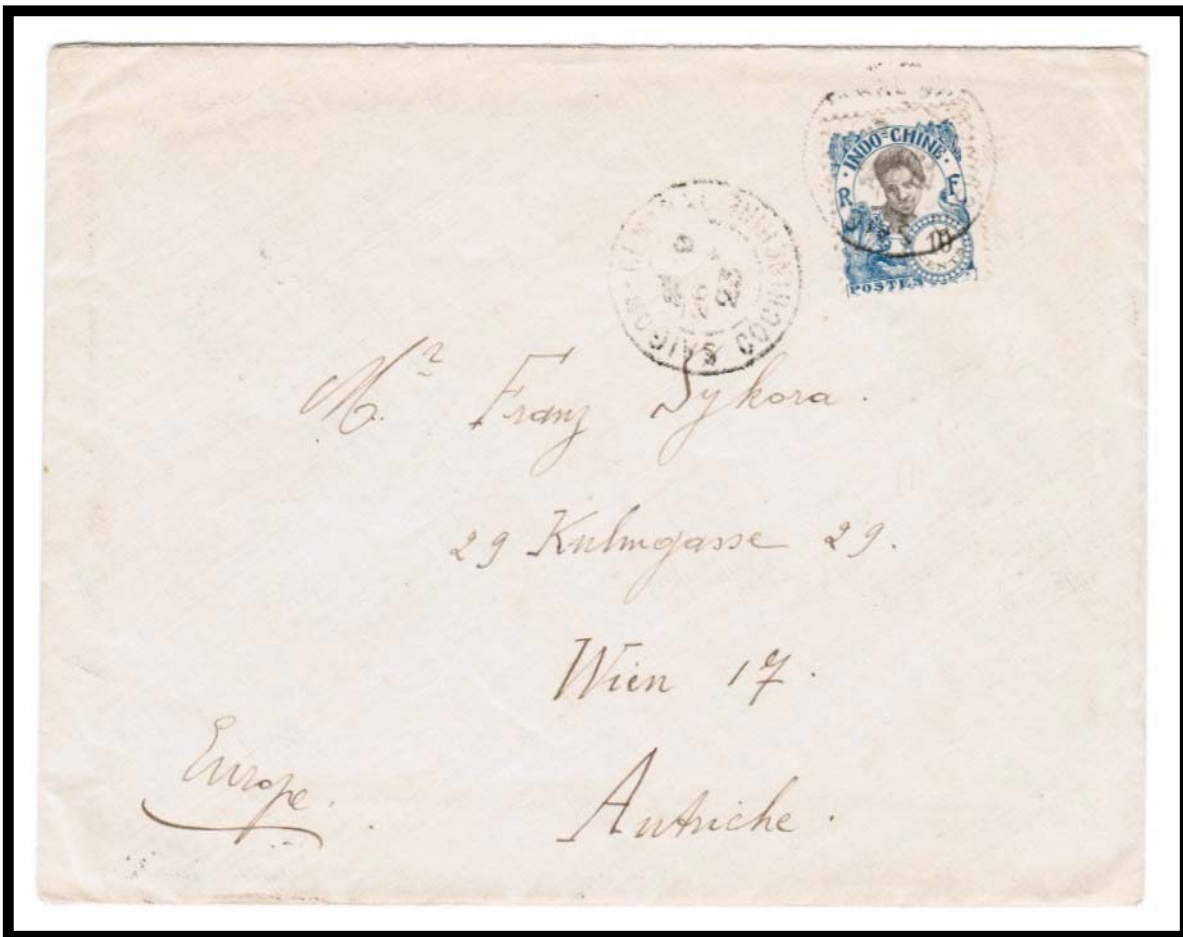 INDO-CHINE
R F
10
CENTS
POSTES
SAIGON CENTRAL
COCHINCHINE
23
Mr. Franz Sykora.
29 Kulmgasse 29.
Wien 17.
Europe.
Autriche.